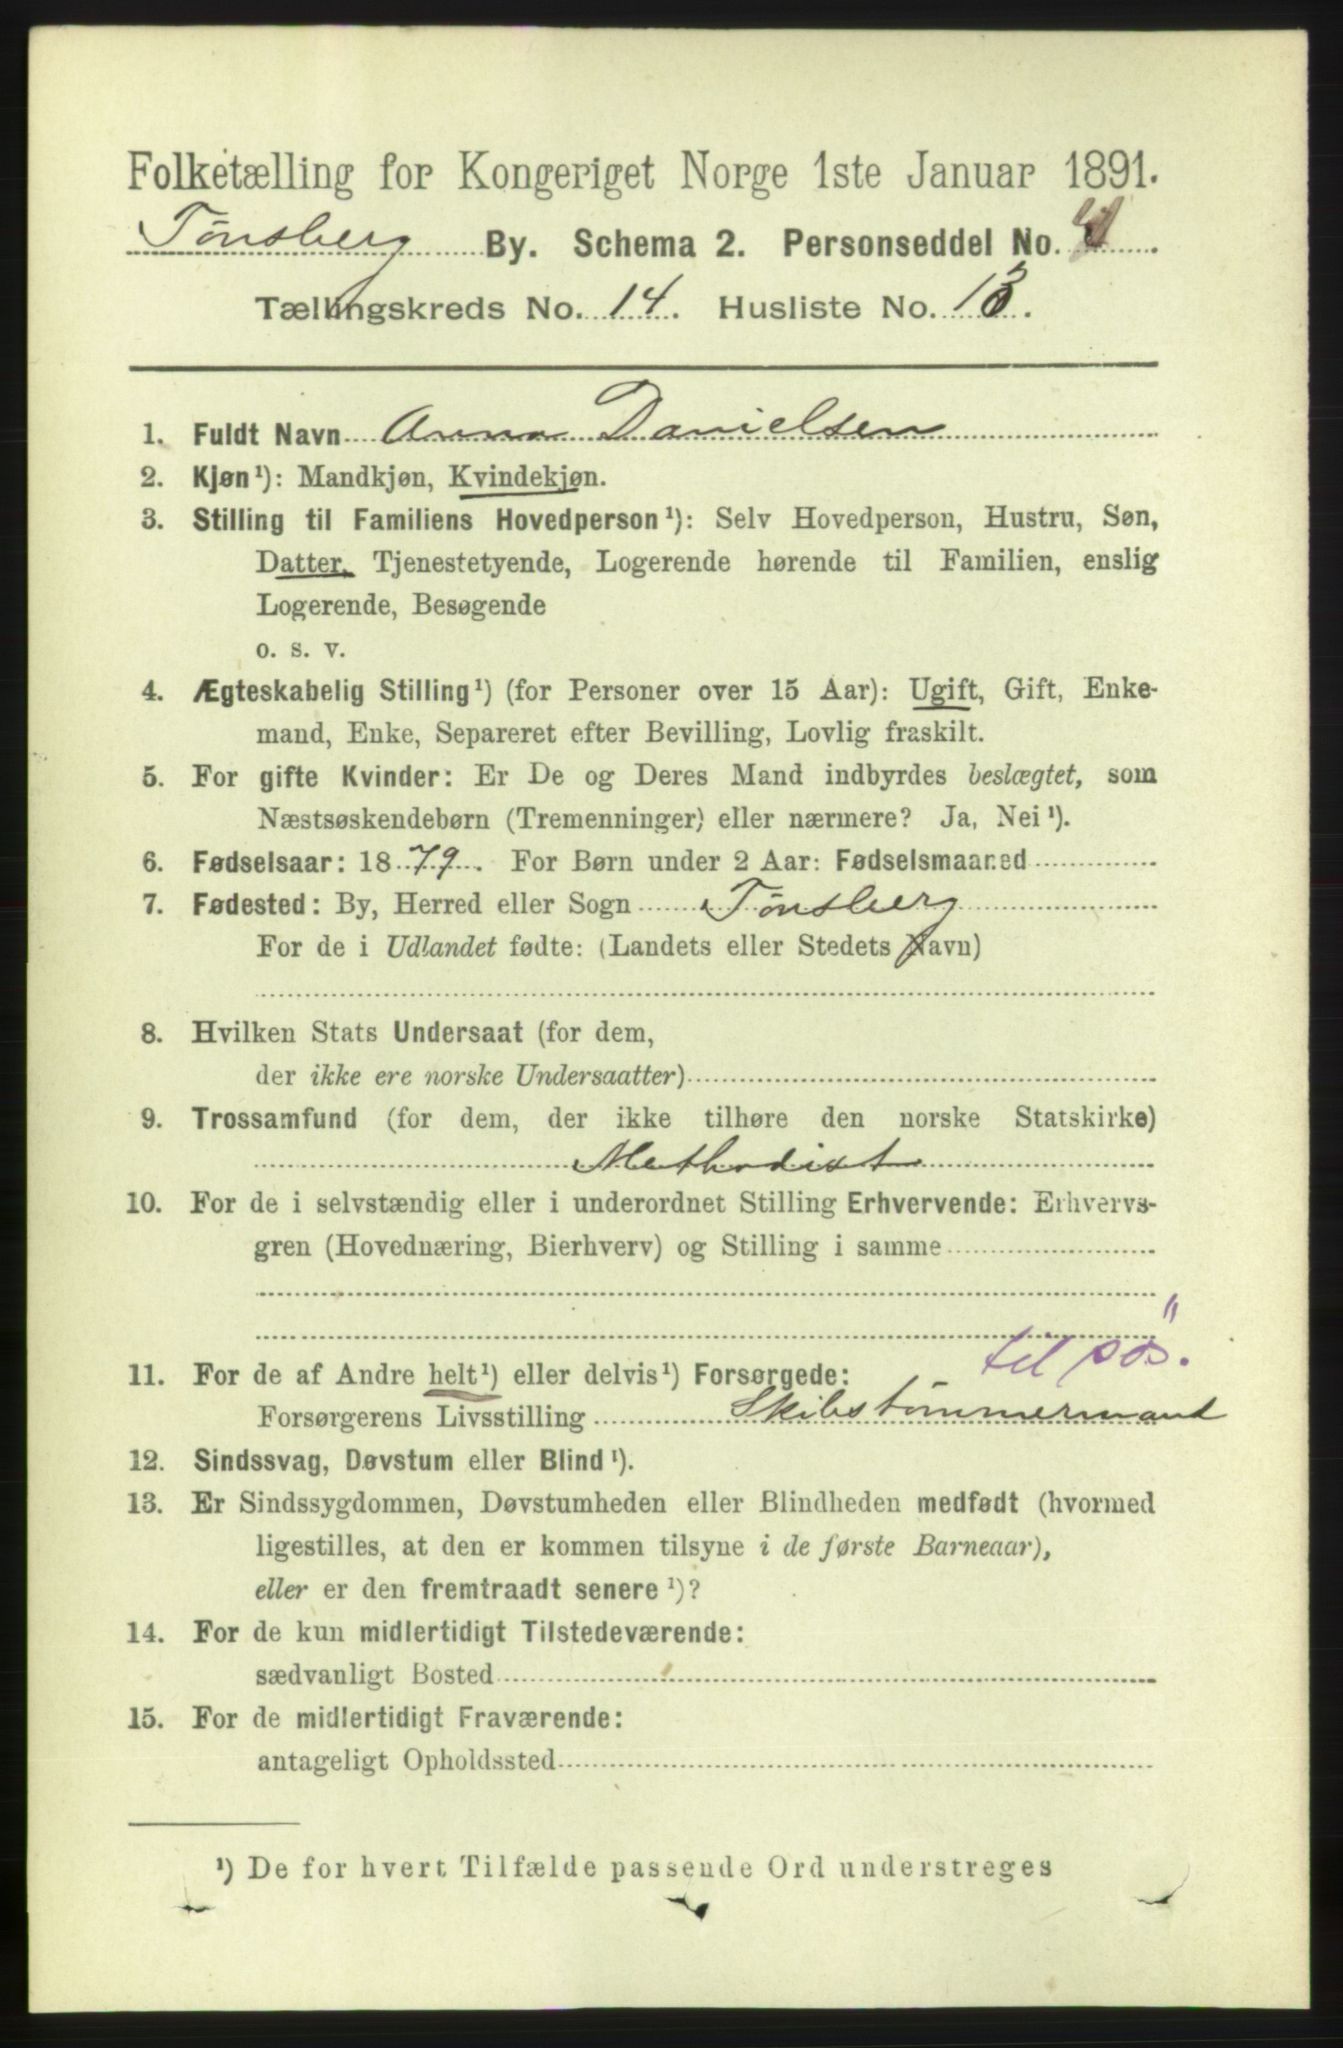 Folketælling for Kongeriget Norge 1ste Januar 1891.
Tønsberg By. Schema 2. Personseddel No.
Tællingskreds No. 14. Husliste No. 13.
1. Fuldt Navn Anna Danielsen
2. Kjøn ¹): Mandkjøn, Kvindekjøn.
3. Stilling til Familiens Hovedperson ¹): Selv Hovedperson, Hustru, Søn,
Datter, Tjenestetyende, Logerende hørende til Familien, enslig
Logerende, Besøgende
o. s. v.
4. Ægteskabelig Stilling ¹) (for Personer over 15 Aar): Ugift, Gift, Enke-
mand, Enke, Separeret efter Bevilling, Lovlig fraskilt.
5. For gifte Kvinder: Er De og Deres Mand indbyrdes beslægtet, som
Næstsøskendebørn (Tremenninger) eller nærmere? Ja, Nei ¹).
6. Fødselsaar: 1879. For Børn under 2 Aar: Fødselsmaaned
7. Fødested: By, Herred eller Sogn Tønsberg
For de i Udlandet fødte: (Landets eller Stedets Navn)
8. Hvilken Stats Undersaat (for dem,
der ikke ere norske Undersaatter)
9. Trossamfund (for dem, der ikke tilhøre den norske Statskirke)
Methodist
10. For de i selvstændig eller i underordnet Stilling Erhvervende: Erhvervs-
gren (Hovednæring, Bierhverv) og Stilling i samme
til søs.
11. For de af Andre helt ¹) eller delvis ¹) Forsørgede:
Forsørgerens Livsstilling Skibstømmermand
12. Sindssvag, Døvstum eller Blind ¹).
13. Er Sindssygdommen, Døvstumheden eller Blindheden medfødt (hvormed
ligestilles, at den er kommen tilsyne i de første Barneaar),
eller er den fremtraadt senere ¹)?
14. For de kun midlertidigt Tilstedeværende:
sædvanligt Bosted
15. For de midlertidigt Fraværende:
antageligt Opholdssted
¹) De for hvert Tilfælde passende Ord understreges